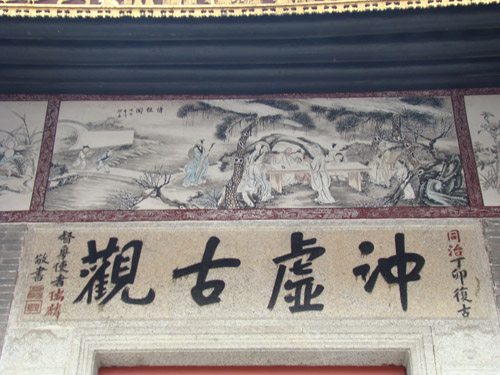 同治丁卯復古
冲虛古觀
督粵使者瑞麟
敬書